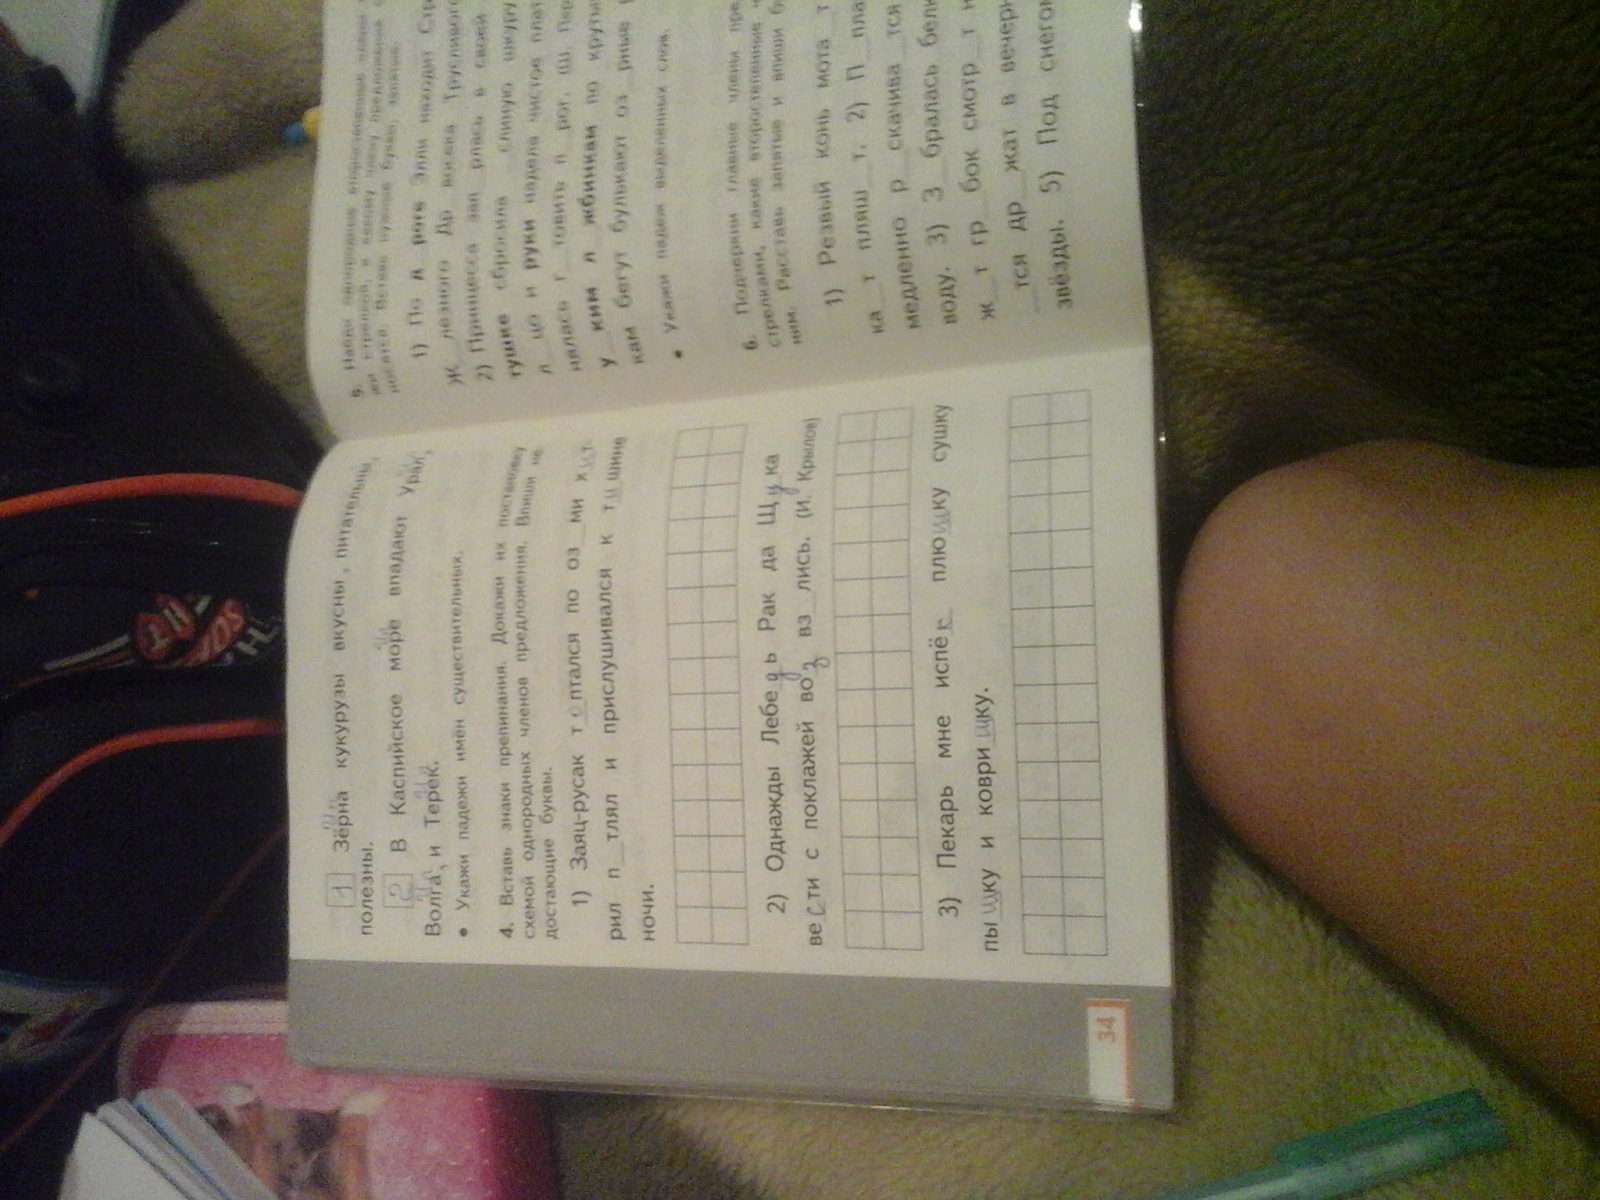 1 Зёрна кукурузы вкусны, питательны,
полезны.
2 В Каспийское море впадают Урал,
Волга, и Терек.
• Укажи падежи имён существительных.
4. Вставь знаки препинания. Докажи их постановку
схемой однородных членов предложения. Впиши не-
достающие буквы.
1) Заяц-русак топтался по оз_ми хит-
рил п_тлял и прислушивался к тишине
ночи.
2) Однажды Лебедь Рак да Щука
вести с поклажей воз вз_лись. (И. Крылов)
3) Пекарь мне испёк плюшку сушку
пышку и ковришку.
34
1) По д_роге Элли находит
Ж_лезного Др_восека Трусливого
2) Принцесса зап_рлась в своей
тушке сбросила _слиную шкуру
л_цо и руки надела чистое
нялась г_товить п_рог.
у_ким л_жбинкам по крутым
кам бегут булькают оз_рные
• Укажи падеж выделенных слов.
6. Подчеркни главные члены
стрелками, какие второстепенные
ним. Расставь запятые и впиши
1) Резвый конь мота_т
ка_т пляш_т. 2) П_
медленно р_скачива_тся
воду. 3) З_бралась
ж_т гр_бок смотр_т
_тся др_жат в
звёзды. 5) Под